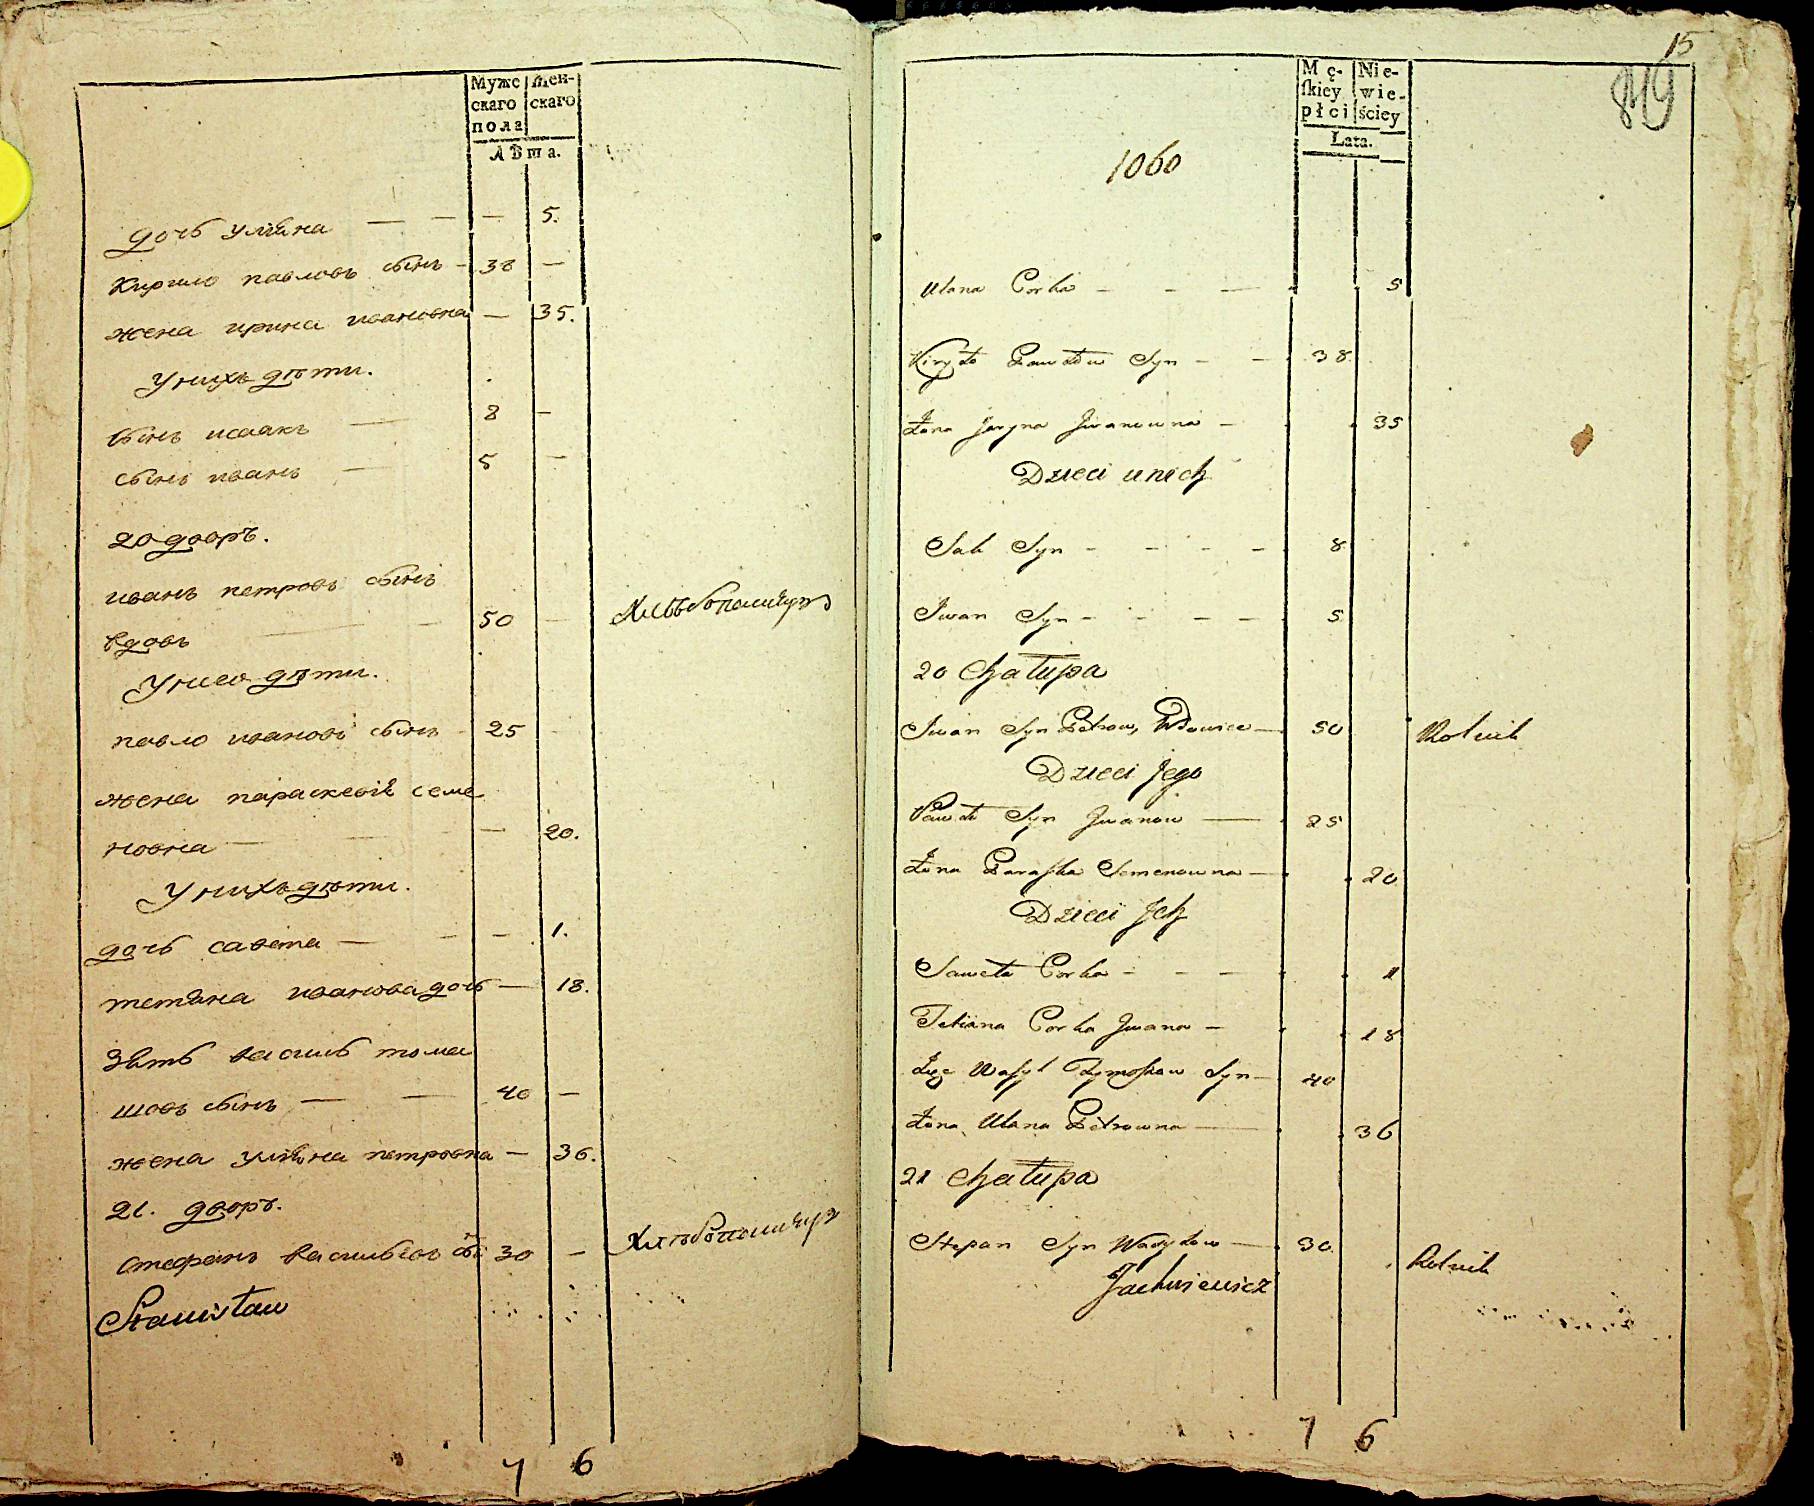 Муже скаго пола
Женскаго
Лѣта.
дочь уліяна — — — 5.
Кирило павловъ сынъ — 38 —
жена ирина ивановна — 35.
У нихъ дѣти.
сынъ исаакъ — 8 —
сынъ иванъ — 5 —
20 дворъ.
иванъ петровъ сынъ
вдовъ — — 50 — Хлѣбопашецъ
У него дѣти.
павло ивановъ сынъ — 25 —
жена параскевія семе
новна — — — 20.
У нихъ дѣти.
дочь савета — — — 1.
тетяна иванова дочь — 18.
Зять василь тома
шовъ сынъ — — 40 —
жена уліяна петровна — 36.
21. дворъ.
стефанъ васильевъ сы 30 — Хлѣбопашецъ
Stanisław
7 6
15
Mę-skiey płci
Nie-wie-ściey
Lata.
1060
Ulana Corka — — — 5
Kiryło Pawłow Syn — — 38
Żona Jaryna Jwanowna — 35
Dzieci u nich
Sak Syn — — — — 8
Jwan Syn — — — — 5
20 Chałupa
Jwan Syn Petrow, Wdowiec — 50 Rolnik
Dzieci Jego
Pawło Syn Jwanow — 25
Żona Paraska Semenowna — 20
Dzieci Jch
Saweta Corka — — — 1
Tetiana Corka Jwana — 18
Zięc Wasyl Tymoszow Syn — 40
Żona Ulana Petrowna — 36
21 Chałupa
Stepan Syn Wasylow — 30 Rolnik
Jachniewicz
7 6